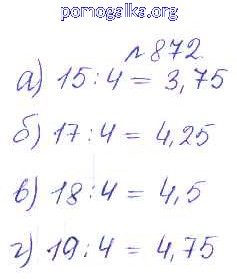 pomogalka.org
№872
а) 15 : 4 = 3,75
б) 17 : 4 = 4,25
в) 18 : 4 = 4,5
г) 19 : 4 = 4,75